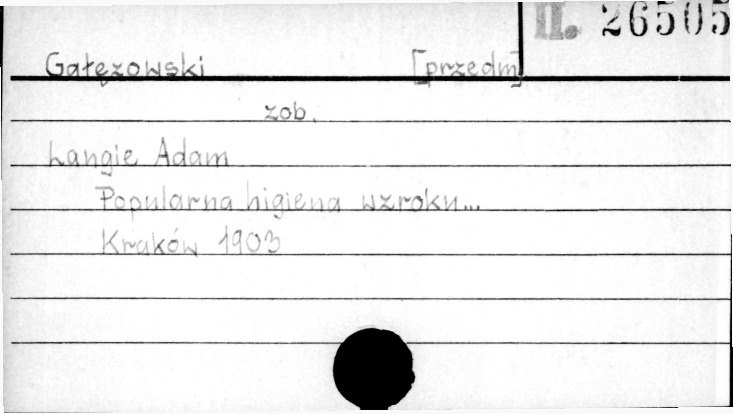 II. 26505
Gałęzowski [przedm]
zob.
Langie Adam
Popularna higiena wzroku...
Kraków 1903